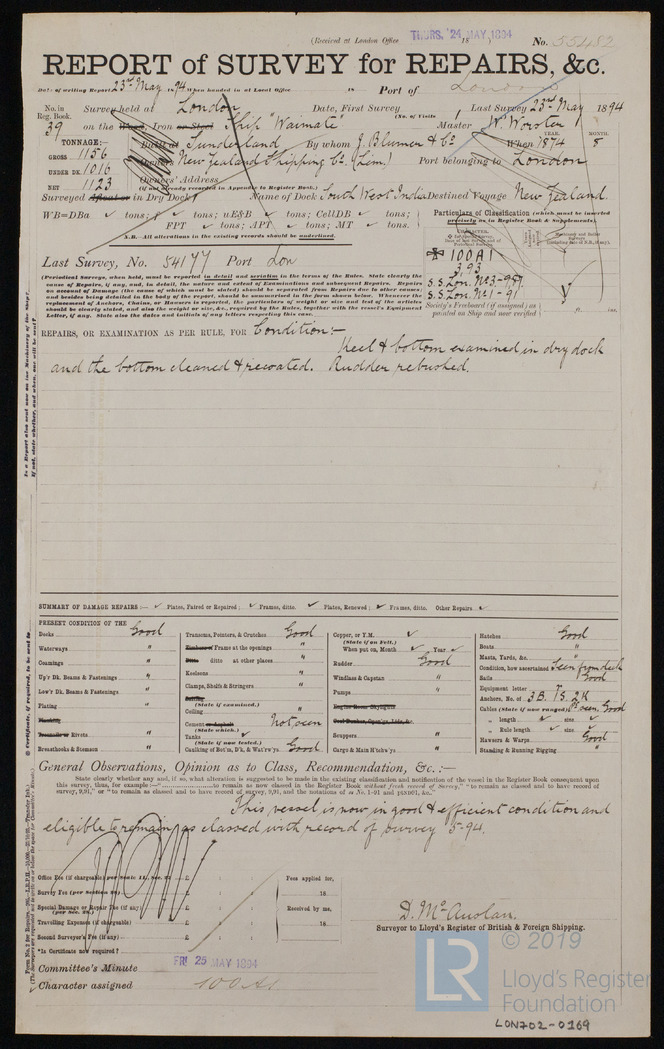 (Received at London Office THURS. 24 MAY, 1894 18 ) No. 55482
REPORT of SURVEY for REPAIRS, &c.
Date of writing Report 23rd May 94 When handed in at Local Office 18 Port of London
No. in Reg. Book. Survey held at London Date, First Survey Last Survey 23rd May 1894
(No. of Visits )
39 on the Wood, Iron or Steel Ship "Waimate" Master W. Worster
TONNAGE:— Built at Sunderland By whom J. Blumer & Co. When 1874 YEAR. MONTH. 8
GROSS 1156 Owners New Zealand Shipping Co. (Lim.) Port belonging to London
UNDER DK. 1016 Owners' Address
NET 1123 (if not already recorded in Appendix to Register Book.)
Surveyed Afloat or in Dry Dock Name of Dock South West India Destined Voyage New Zealand.
WB=DBa tons; f tons; uE&B tons; CellDB tons;
FPT tons; APT tons; MT tons.
N.B.—All alterations in the existing records should be underlined.
Particulars of Classification (which must be inserted precisely as in Register Book & Supplements).
Last Survey, No. 54177 Port Lon
100A1
3,93
S.S. Lon. No. 3-9,87
S.S. Lon. No. 1-91
Society's Freeboard (if assigned) as painted on Ship and now verified ft. ins.
(Periodical Surveys, when held, must be reported in detail and seriatim in the terms of the Rules. State clearly the
cause of Repairs, if any, and, in detail, the nature and extent of Examinations and subsequent Repairs. Repairs
on account of Damage (the cause of which must be stated) should be separated from Repairs due to other causes;
and besides being detailed in the body of the report, should be summarised in the form shown below. Whenever the
replacement of Anchors, Chains, or Hawsers is reported, the particulars of weight or size, and test of articles
should be clearly stated, and also the weight or size, &c., required by the Rules, together with the vessel's Equipment
Letter, if any. State also the dates and initials of any letters respecting this case.
REPAIRS, OR EXAMINATION AS PER RULE, FOR Condition:—
Keel & bottom examined in dry dock
and the bottom cleaned & recoated. Rudder rebushed.
SUMMARY OF DAMAGE REPAIRS:— Plates, Faired or Repaired; Frames, ditto. Plates, Renewed; Frames, ditto. Other Repairs
PRESENT CONDITION OF THE
Decks Good
Waterways "
Coamings "
Up'r Dk. Beams & Fastenings "
Low'r Dk. Beams & Fastenings "
Plating "
Planking
Treenails or Rivets "
Breasthooks & Stemson "
Transoms, Pointers, & Crutches Good
Timbers of Frame at the openings "
Ditto ditto at other places "
Keelsons "
Clamps, Shelfs & Stringers "
Ceiling
(State if examined.)
Cement or Asphalt Not seen
(State which.)
Tanks
(State if now tested.)
Caulking of Bot'm, D'k, & Wat'rw'ys Good
Copper, or Y.M.
(State if on Felt.)
When put on, Month Year
Rudder Good
Windlass & Capstan "
Pumps "
Engine Room Skylights
Coal Bunker, Openings, Lids, &c.
Scuppers "
Cargo & Main H'tchw'ys "
Hatches Good
Boats "
Masts, Yards, &c. "
Condition, how ascertained Seen from deck
Sails Good
Equipment letter
Anchors, No. of 3B. 1S. 2K
Cables (State if now ranged) Pt seen, Good
" length size
" Rule length size
Hawsers & Warps Good
Standing & Running Rigging "
General Observations, Opinion as to Class, Recommendation, &c.:—
State clearly whether any, and if so, what alteration is suggested to be made in the existing classification and notification of the vessel in the Register Book consequent upon
this survey, thus, for example:—"to remain as now classed in the Register Book without fresh record of Survey," "to remain as classed and to have record of
survey, 9,91," or "to remain as classed and to have record of survey, 9,91, and the notations of ss No. 1-91 and pt91, &c."
This vessel is now in good & efficient condition and
eligible to remain as classed with record of survey 5-94.
Office Fee (if chargeable) per Scale £ : : Fees applied for,
Survey Fee £ : : 18
Special Damage or Repair Fee (if any) £ : : Received by me,
Travelling Expenses (if chargeable) £ : : 18
Second Surveyor's Fee (if any) £ : :
*Is Certificate now required?
D. McAuslan.
Surveyor to Lloyd's Register of British & Foreign Shipping.
Committee's Minute FRI 25 MAY 1894
Character assigned 100 A1
LR
© 2019
Lloyd's Register
Foundation
LON702-0169